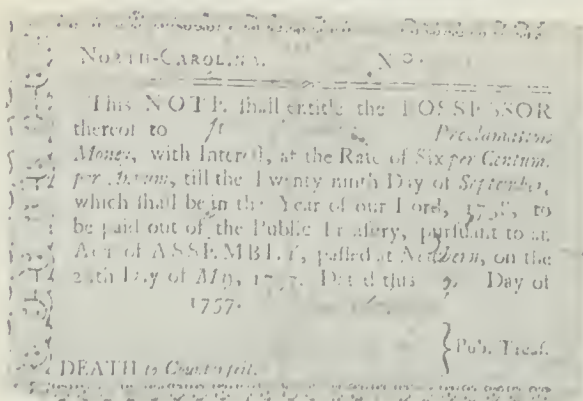 NORTH-CAROLINA. No.
This NOTE shall entitle the POSSESSOR
thereof to Proclamation
Money, with Interest, at the Rate of Six per Centum.
per Annum, till the Twenty ninth Day of September,
which shall be in the Year of our Lord, 1758, to
be paid out of the Public Treasury, pursuant to an
Act of ASSEMBLY, passed at Newbern, on the
Day of May, 1757. Dated this Day of
1757.
Pub. Treas.
DEATH to Counterfeit.